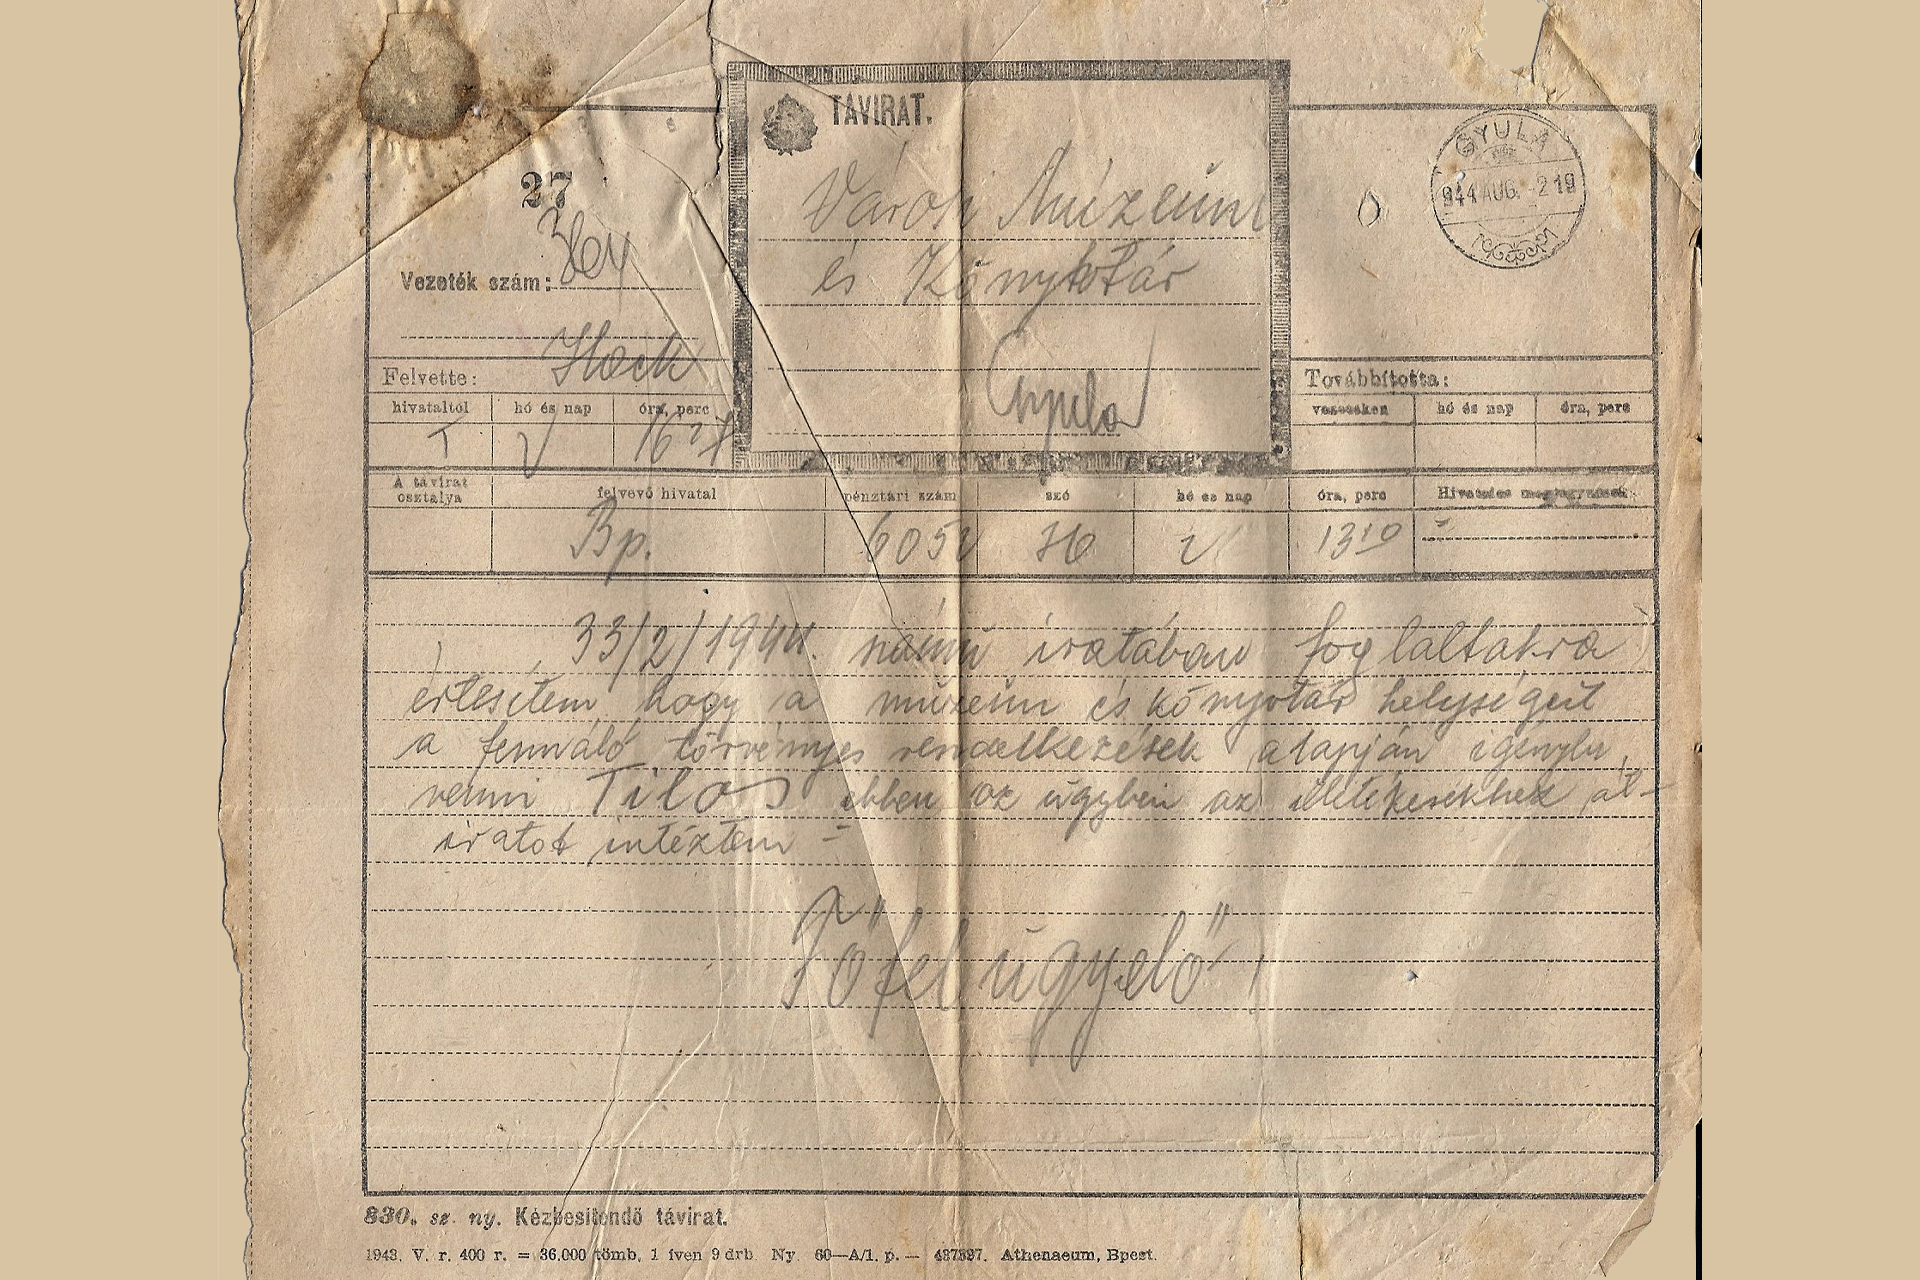 TÁVIRAT.
Városi Múzeum
és Könyvtár
Gyula
GYULA
944 AUG. -2 19
27
Vezeték szám:
Felvette:
Továbbította:
hivataltól hó és nap óra, perc
vezetéken hó és nap óra, perc
T 16 27
A távirat osztálya felvevő hivatal pénztári szám szó hó és nap óra, perc Hivatalos megjegyzések:
Bp. 36 13 10
33/2/1944. számú iratában foglaltakra
értesitem hogy a múzeum és könyvtár helységeit
a fennáló törvényes rendelkezések alapján igénybe
venni Tilos ebben az ügyben az illetékesekhez át-
iratot intéztem =
Főfelügyelő
830. sz. ny. Kézbesítendő távirat.
1943. V. r. 400 r. = 36.000 tömb, 1 íven 9 drb Ny. 60—A/1. p. — Athenaeum, Bpest.